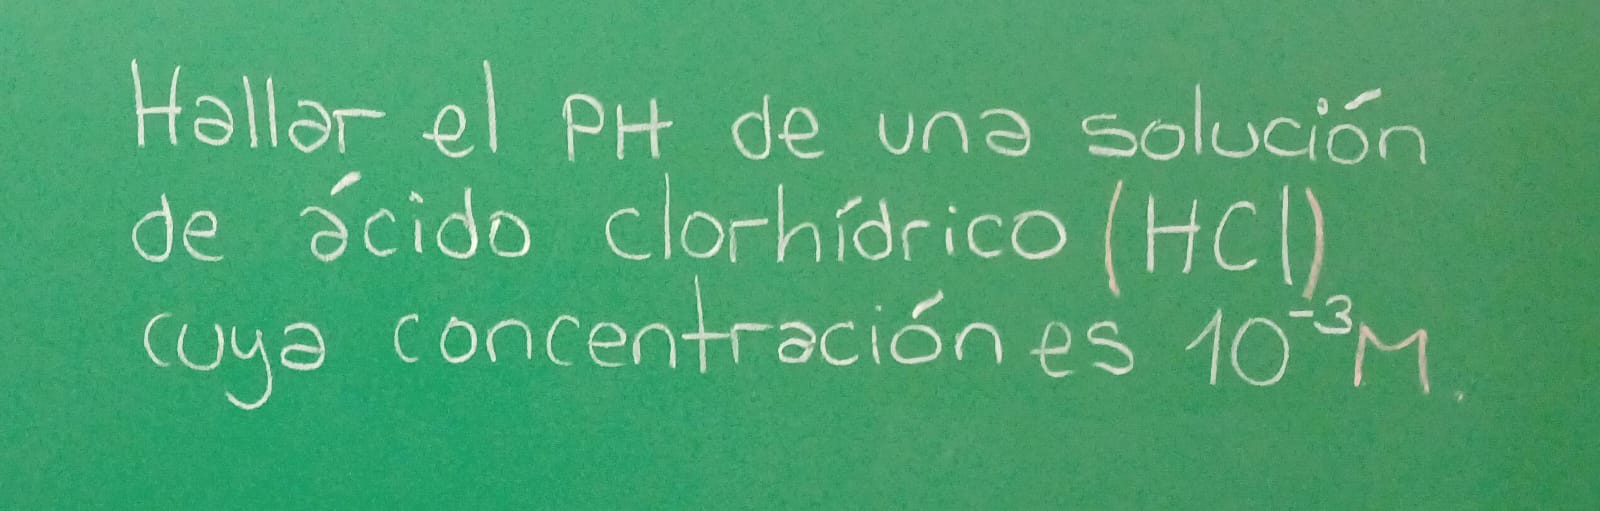 Hallar el PH de una solución
de ácido clorhídrico (HCl)
cuya concentración es 10⁻³M.